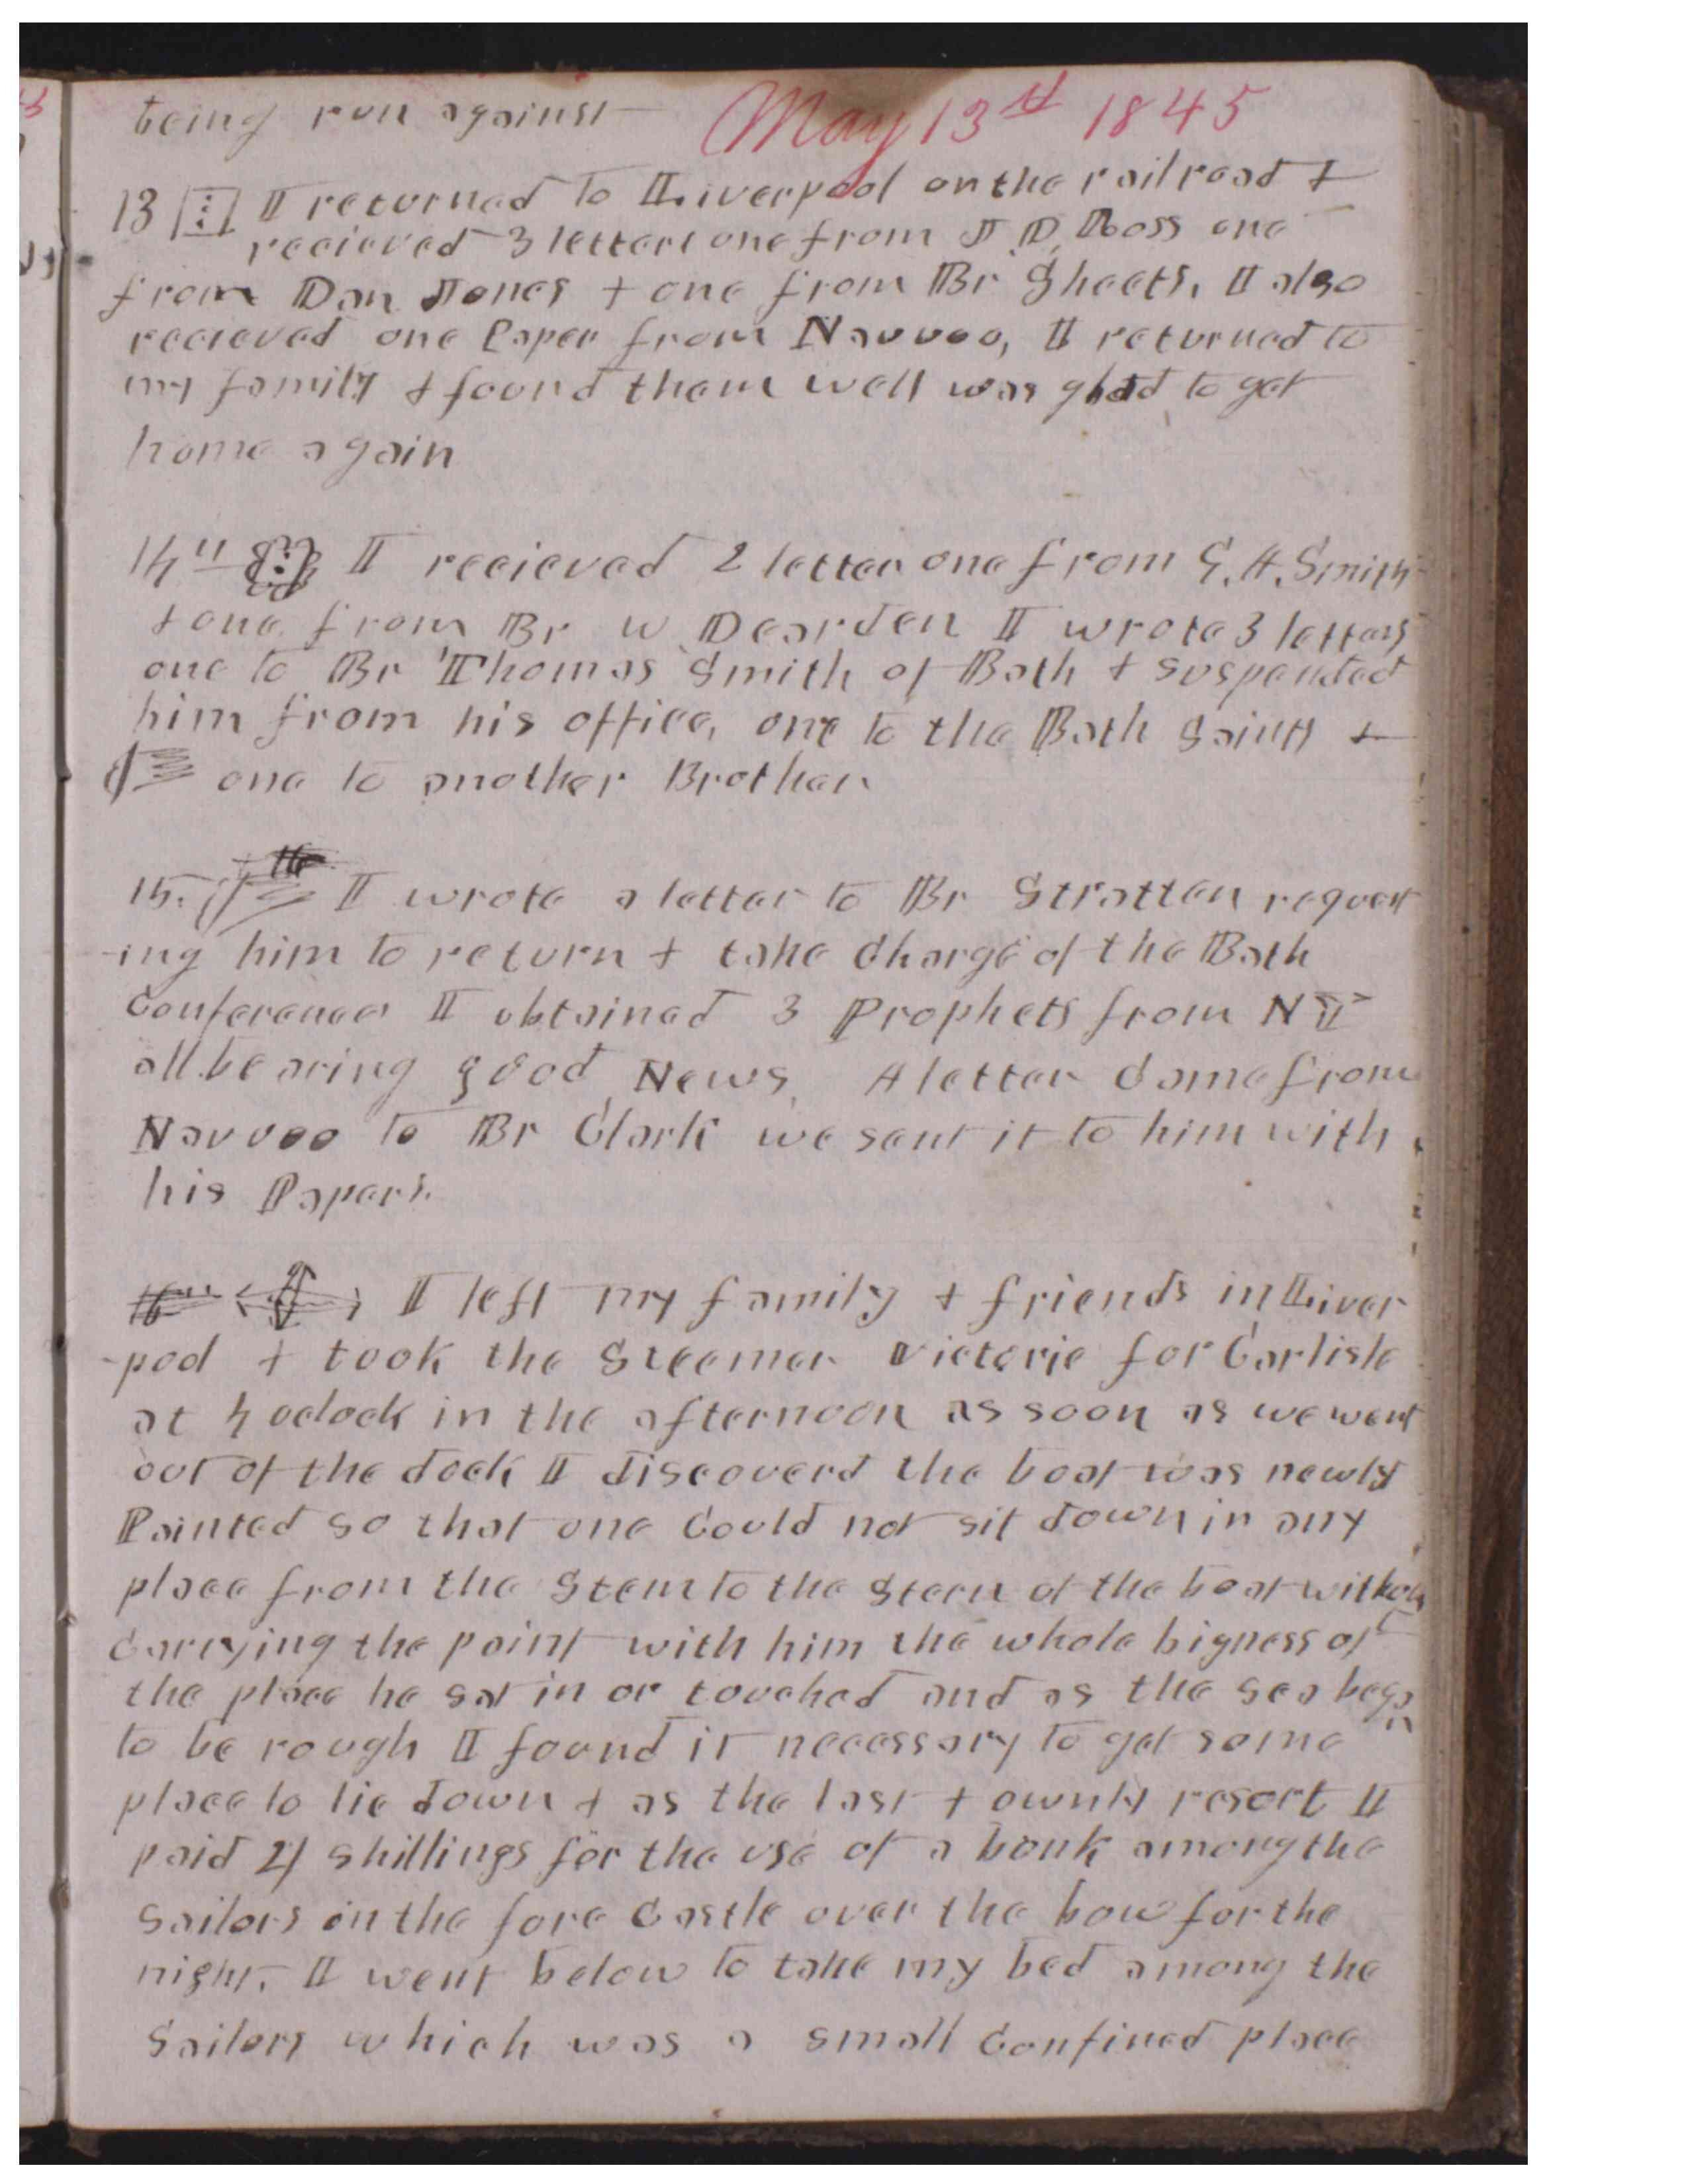 being run against May 13st 1845
13 I returned to Liverpool on the railroad +
recieved 3 letters one from J D Ross one
from Dan Jones + one from Br Sheets, I also
recieved one Paper from Nauvoo, I returned to
my family + found them well was glad to get
home again
14" I recieved 2 letter one from G. A. Smith
+ one from Br W Dearden I wrote 3 letters
one to Br Thomas Smith of Bath + suspended
him from his office, one to the Bath Saints +
one to another Brother
15. I wrote a letter to Br Stratten request
-ing him to return + take Charge of the Bath
Conference I obtained 3 Prophets from N Y
all bearing good News. A letter Came from
Nauvoo to Br Clark we sent it to him with
his Papers.
16" I left my family + friends in Liver
-pool + took the Steemer Victorie for Carlisle
at 4 oclock in the afternoon as soon as we went
out of the dock I discoverd the boat was newly
Painted so that one Could not sit down in any
place from the Stem to the Stern of the boat without
Carrying the paint with him the whole bigness of
the place he sat in or touched and as the sea began
to be rough I found it necessary to get some
place to lie down + as the last + ownly resort I
paid 2/ shillings for the use of a bunk among the
Sailors in the fore Castle over the bow for the
night. I went below to take my bed among the
Sailors which was a small Confined place